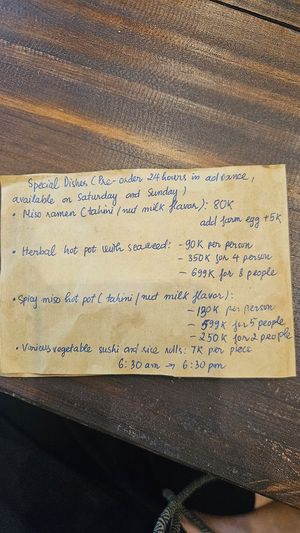 Special Dishes (Pre-order 24 hours in advance,
available on Saturday and Sunday)
• Miso ramen (tahini/nut milk flavor): 80K
add farm egg +5K
• Herbal hot pot with seaweed: - 90K per person
- 350K for 4 person
- 699K for 8 people
• Spicy miso hot pot (tahini/nut milk flavor):
- 130K per person
- 599K for 5 people
- 250K for 2 people
• Various vegetable sushi and rice rolls: 7K per piece
6:30 am → 6:30 pm